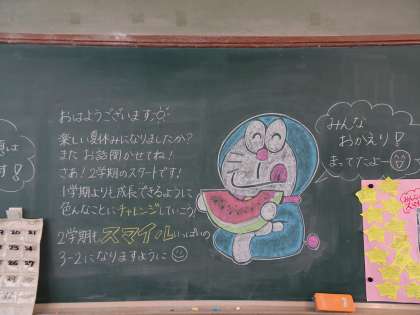 おはようございます
楽しい夏休みになりましたか?
また お話聞かせてね!
さあ!2学期のスタートです!
1学期よりも成長できるように
色んなことにチャレンジしていこう!
2学期もスマイルいっぱいの
3-2になりますように
みんな
おかえり!
まってたよー